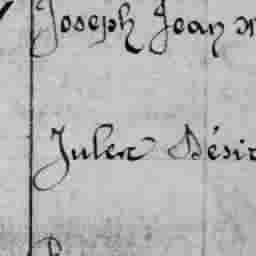 Joseph Jean
Jules Dési